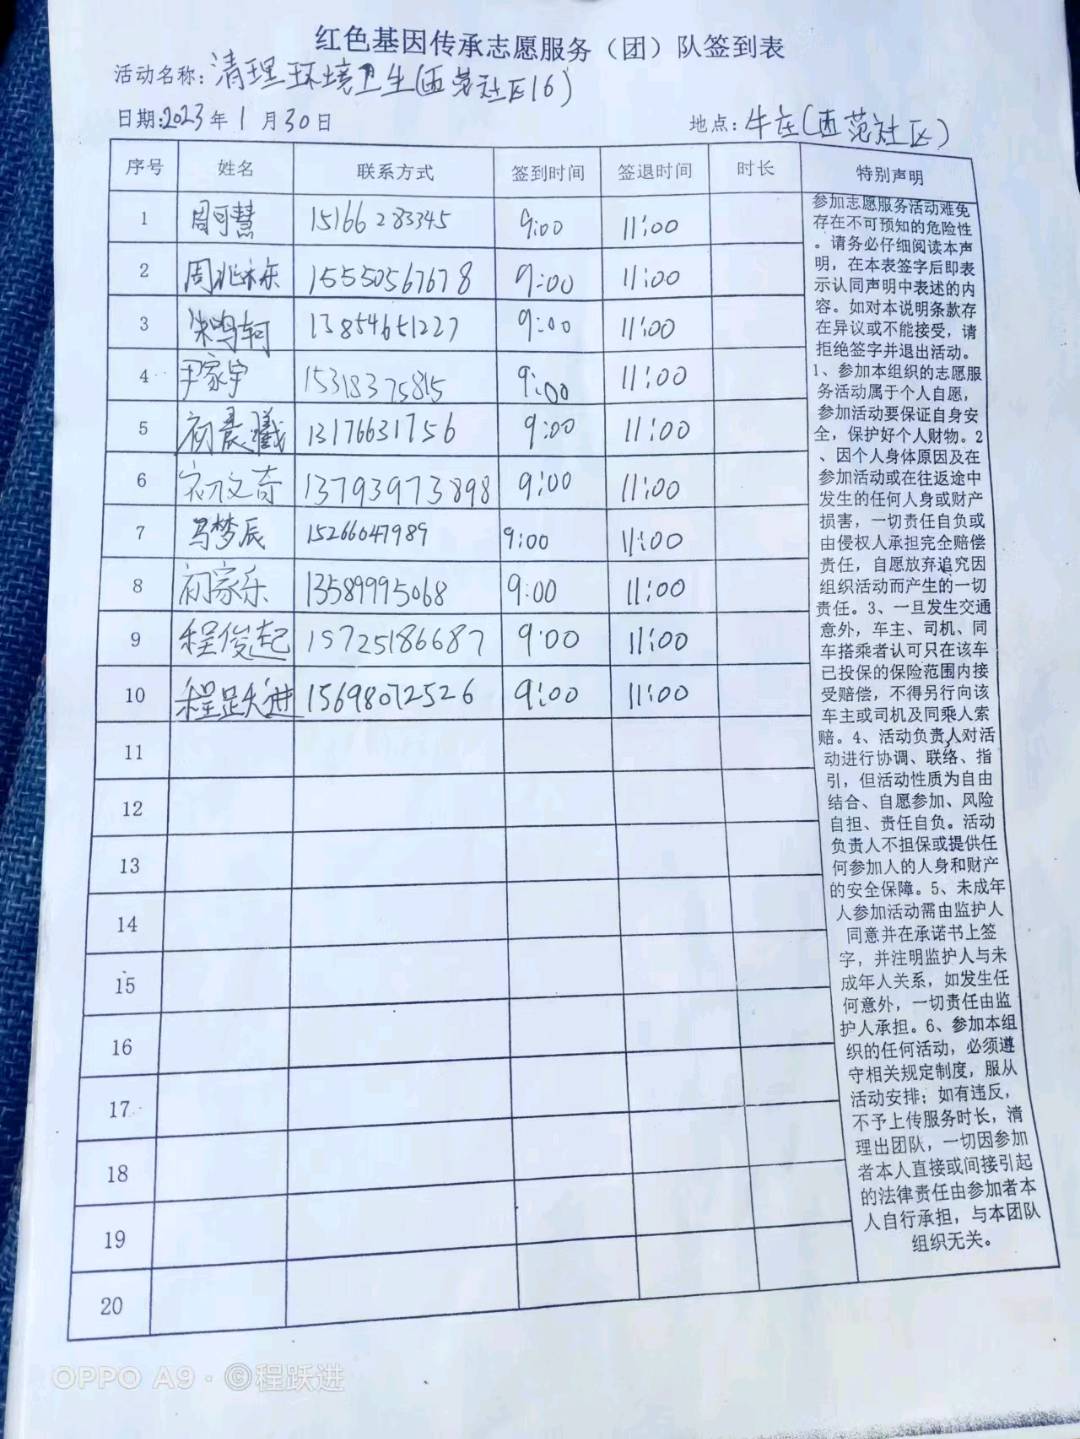 红色基因传承志愿服务（团）队签到表
活动名称：清理环境卫生(西范社区16)
日期：2023年1月30日 地点：牛庄(西范社区)
序号 姓名 联系方式 签到时间 签退时间 时长 特别声明
1 周可慧 15166283345 9:00 11:00
2 周兆栋 15550567678 9:00 11:00
3 朱鸣轲 13854651227 9:00 11:00
4 尹家宇 15318375815 9:00 11:00
5 初晨曦 13176631756 9:00 11:00
6 初文奇 13793973898 9:00 11:00
7 马梦辰 15266047989 9:00 11:00
8 初家乐 13589995068 9:00 11:00
9 程俊起 15725186687 9:00 11:00
10 程跃进 15698072526 9:00 11:00
11
12
13
14
15
16
17
18
19
20
参加志愿服务活动难免
存在不可预知的危险性
。请务必仔细阅读本声
明，在本表签字后即表
示认同声明中表述的内
容。如对本说明条款存
在异议或不能接受，请
拒绝签字并退出活动。
1、参加本组织的志愿服
务活动属于个人自愿，
参加活动要保证自身安
全，保护好个人财物。2
、因个人身体原因及在
参加活动或在往返途中
发生的任何人身或财产
损害，一切责任自负或
由侵权人承担完全赔偿
责任，自愿放弃追究因
组织活动而产生的一切
责任。3、一旦发生交通
意外，车主、司机、同
车搭乘者认可只在该车
已投保的保险范围内接
受赔偿，不得另行向该
车主或司机及同乘人索
赔。4、活动负责人对活
动进行协调、联络、指
引，但活动性质为自由
结合、自愿参加、风险
自担、责任自负。活动
负责人不担保或提供任
何参加人的人身和财产
的安全保障。5、未成年
人参加活动需由监护人
同意并在承诺书上签
字，并注明监护人与未
成年人关系，如发生任
何意外，一切责任由监
护人承担。6、参加本组
织的任何活动，必须遵
守相关规定制度，服从
活动安排；如有违反，
不予上传服务时长，清
理出团队，一切因参加
者本人直接或间接引起
的法律责任由参加者本
人自行承担，与本团队
组织无关。
OPPO A9 · ©程跃进